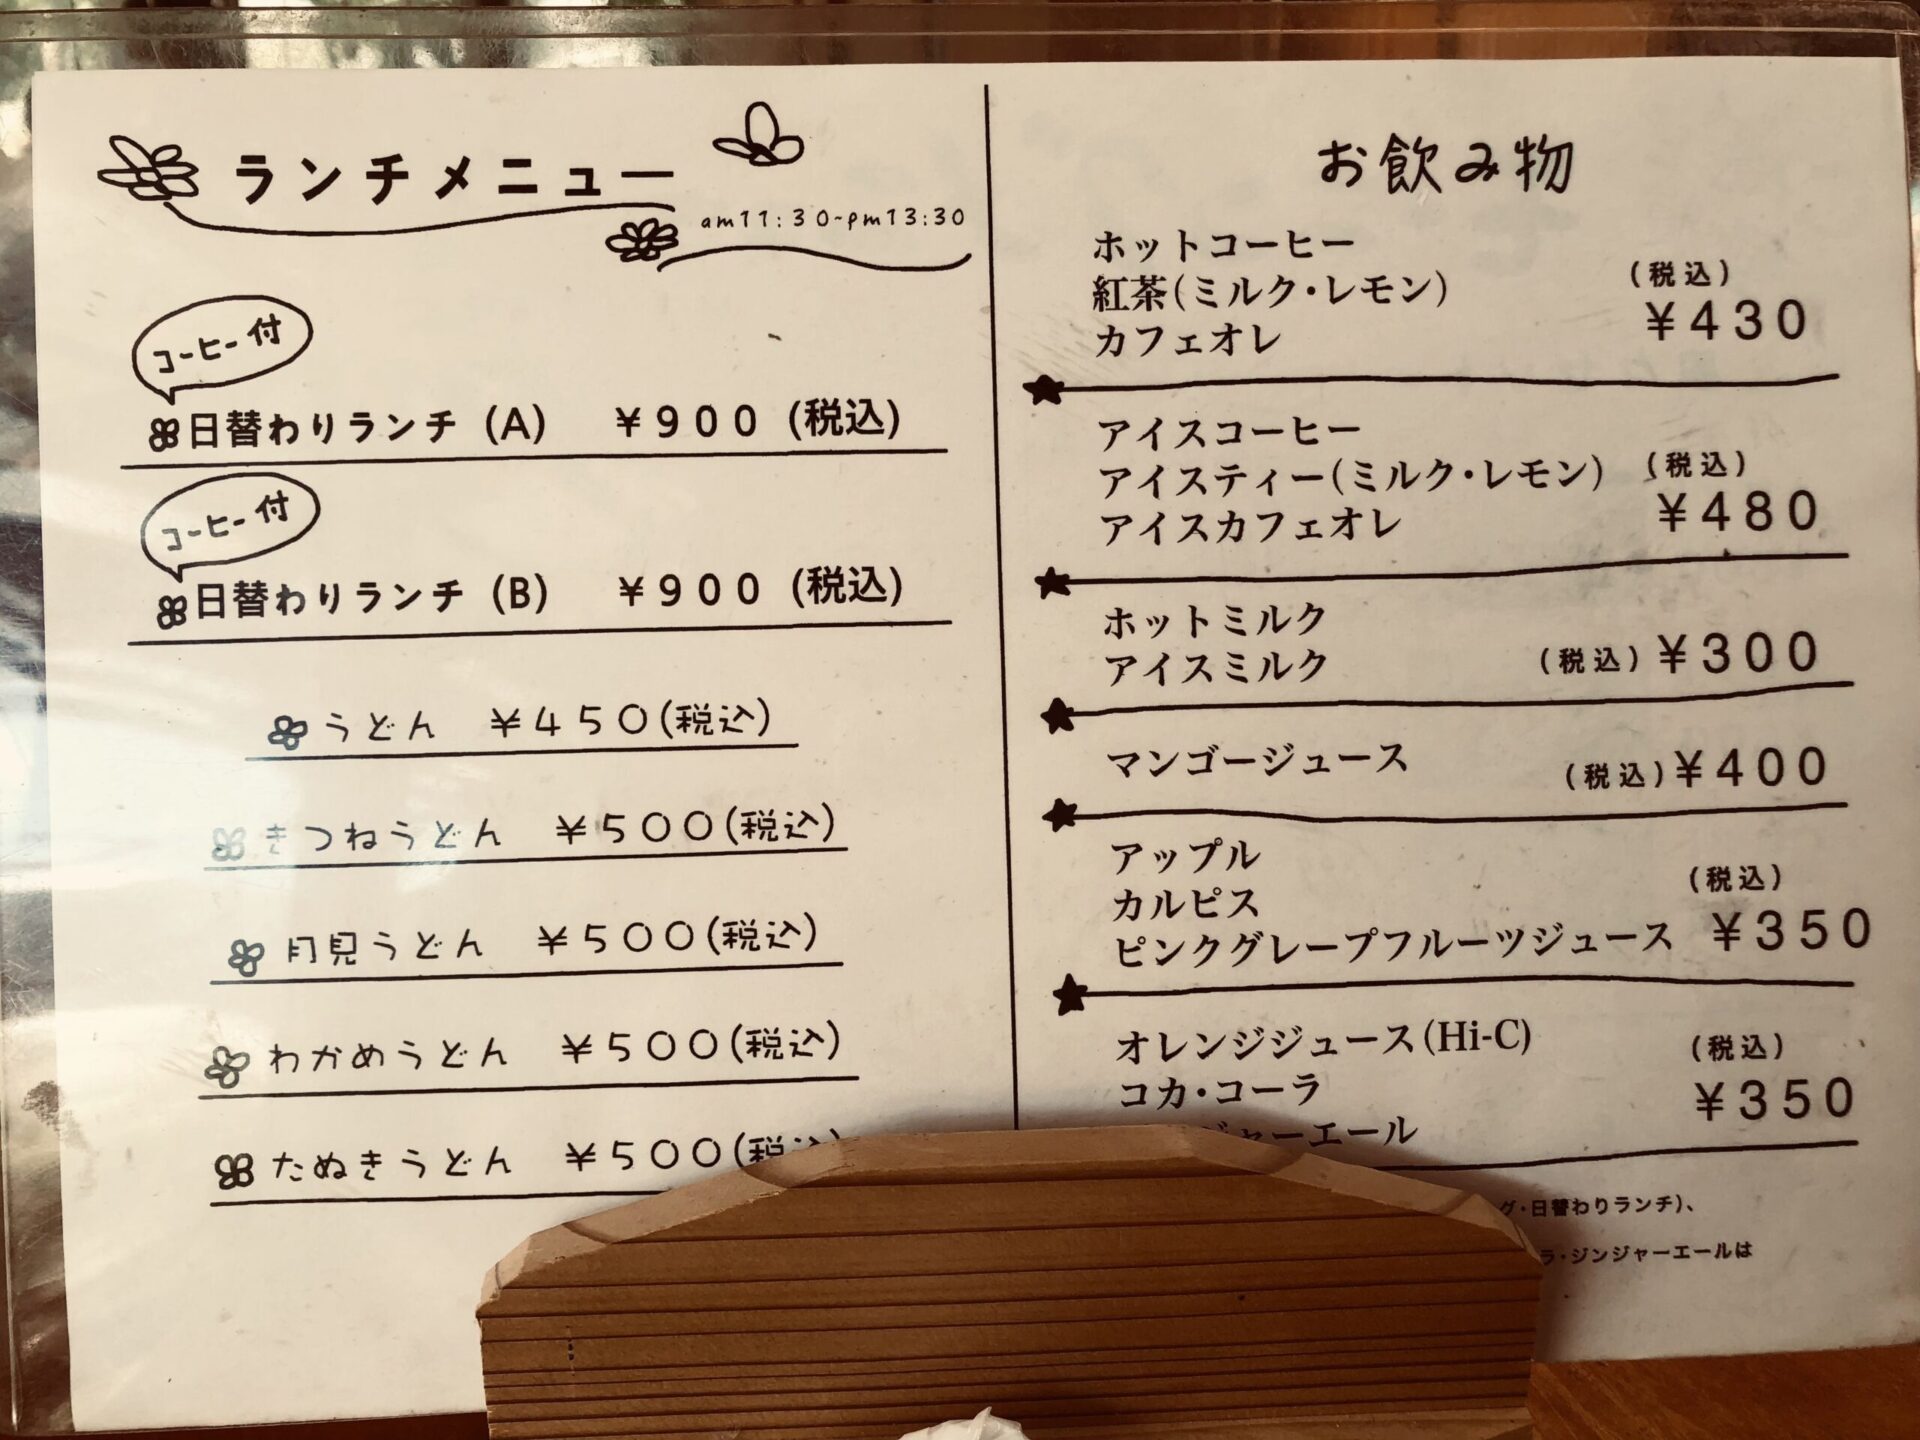 ランチメニュー
am11:30~pm13:30
コーヒー付
日替わりランチ (A) ¥900 (税込)
コーヒー付
日替わりランチ (B) ¥900 (税込)
うどん ¥450(税込)
きつねうどん ¥500(税込)
月見うどん ¥500(税込)
わかめうどん ¥500(税込)
たぬきうどん ¥500(税込
お飲み物
ホットコーヒー
紅茶(ミルク・レモン)
カフェオレ
(税込)
¥430
アイスコーヒー
アイスティー(ミルク・レモン)
アイスカフェオレ
(税込)
¥480
ホットミルク
アイスミルク
(税込) ¥300
マンゴージュース (税込) ¥400
アップル
カルピス
ピンクグレープフルーツジュース
(税込)
¥350
オレンジジュース(Hi-C)
コカ・コーラ
ジャーエール
(税込)
¥350
グ・日替わりランチ)、
ラ・ジンジャーエールは